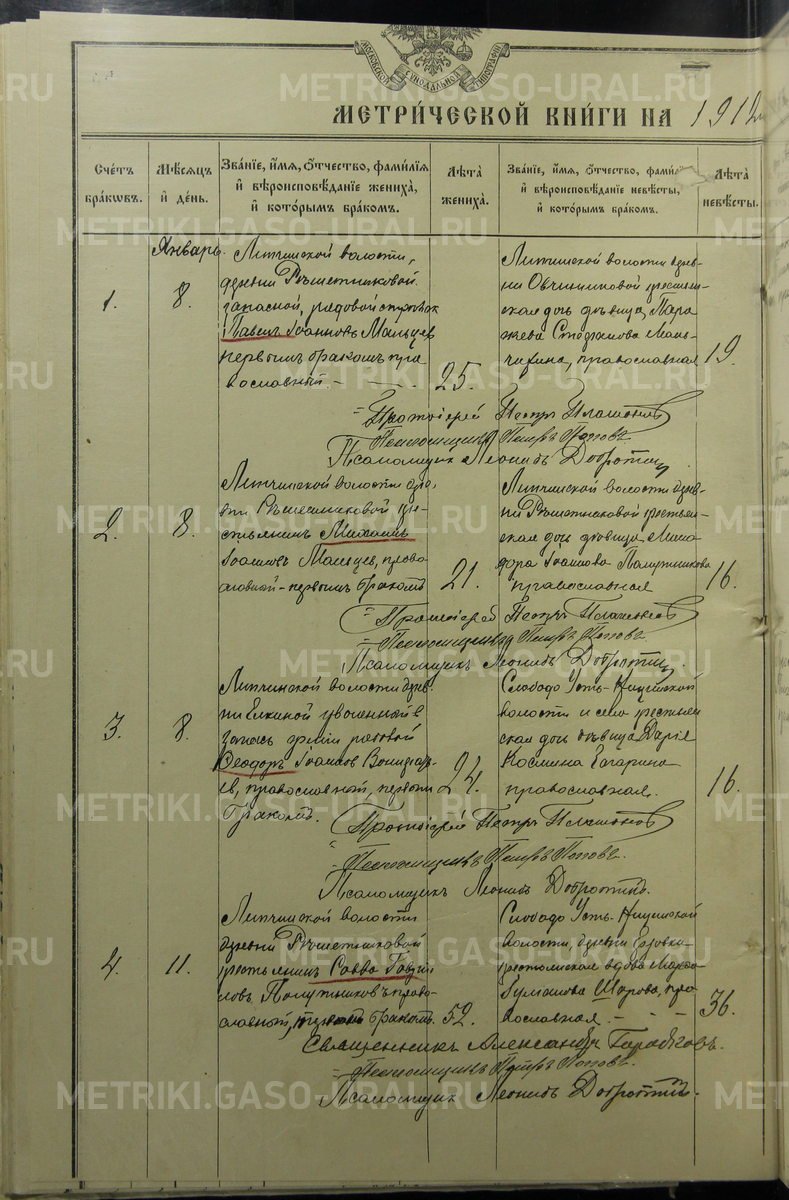 МОСКОВСКОЙ СѴНОДАЛЬНОЙ ТИПОГРАФІИ
МЕТРИ́ЧЕСКОЙ КНИ́ГИ НА 1912
Сче́тъ бра́кѡвъ.
Мѣ́сѧцъ и҆ де́нь.
Зва́нїе, и҆́мѧ, ѻ҆́тчество, фами́лїѧ
и҆ вѣроисповѣ́данїе жениха̀,
и҆ кото́рымъ бра́комъ.
Лѣ́та жениха̀.
Зва́нїе, и҆́мѧ, ѻ҆́тчество, фами́лїѧ
и҆ вѣроисповѣ́данїе невѣ́сты,
и҆ кото́рымъ бра́комъ.
Лѣ́та невѣ́сты.
Январь.
1.
8.
Липчинской волости,
деревни Рѣшетниковой
запасной, рядовой стрѣлокъ
Павелъ Іоанновъ Мальцев
первымъ бракомъ пра
вославный. —
25.
Липчинской волости дерев
ни Овчинниковой крестьян
ская дочь дѣвица Пара
скева Стефанова
православная
19.
Протоіерей Петръ Платонов
Псаломщикъ Петръ Поповъ
Псаломщик Леонидъ Добротин
2.
8.
Липчинской волости дере
вни Рѣшетниковой кре
стьянинъ Михаилъ
Іоаннов Мальцев, право
славной - первымъ бракомъ
21.
Липчинской волости дерев
ни Рѣшетниковой крестьян
ская дочь дѣвица
Іоаннова Полутникова
православная
16.
Протоіерей Петръ Платонов
Псаломщикъ Петръ Поповъ
Псаломщикъ Леонидъ Добротин
3.
8.
Липчинской волости дерев
ни Елкиной уволенной в
запасъ арміи рядовой
Ѳеодоръ Іоаннов
православный, первым
бракомъ.
24.
Слободо Усть-Ницинской
волости и села крестьян
ская дочь дѣвица Дарія
Космина Гагарина
православная.
16.
Протоіерей Петръ Платонов
Псаломщикъ Петръ Поповъ.
Псаломщикъ Леонидъ Добротинъ.
4.
11.
Липчинской волости
деревни Рѣшетниковой
крестьянинъ Савва Гаврі
ловъ Полутниковъ право
славный, бракомъ.
52.
Слободо Усть-Ницинской
волости, деревни
крестьянская вдова
Шарова, пра
вославная. —
36.
Священникъ Александръ
Псаломщикъ Петръ Поповъ.
Псаломщик Леонидъ Добротинъ.
METRIKI.GASO-URAL.RU